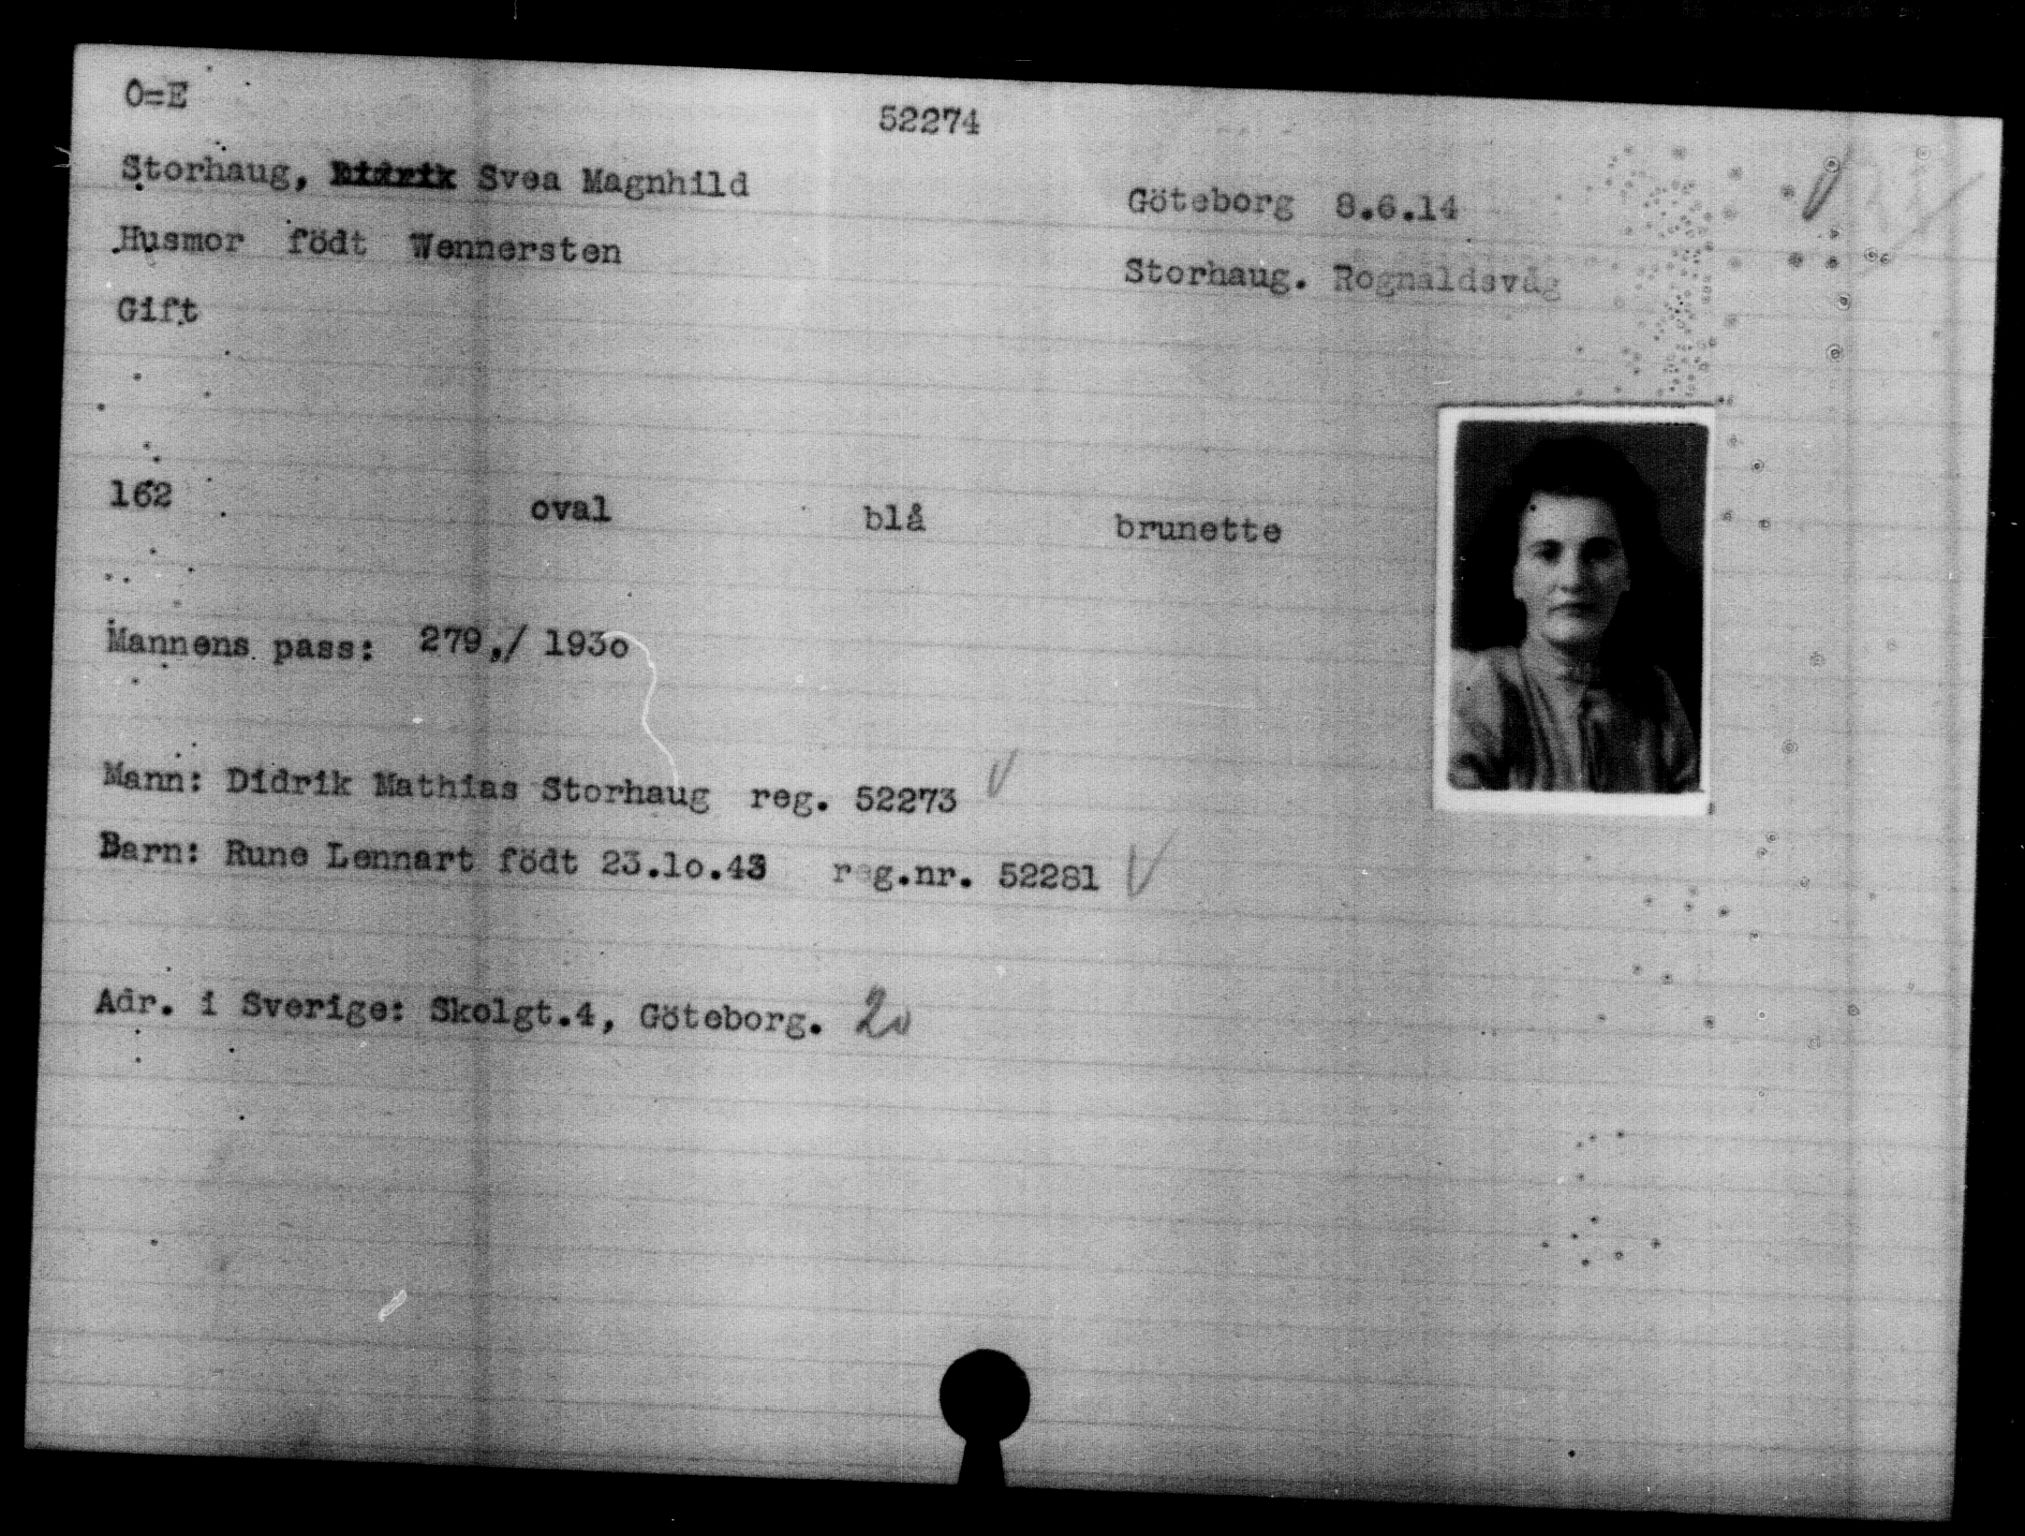 O=E
52274
Storhaug, Didrik Svea Magnhild
Göteborg 8.6.14
Husmor födt Wennersten
Storhaug. Rognaldsvåg
Gift
162 oval blå brunette
Mannens pass: 279,/ 193o
Mann: Didrik Mathias Storhaug reg. 52273
Barn: Rune Lennart födt 23.lo.43 reg.nr. 52281
Adr. i Sverige: Skolgt.4, Göteborg. 20